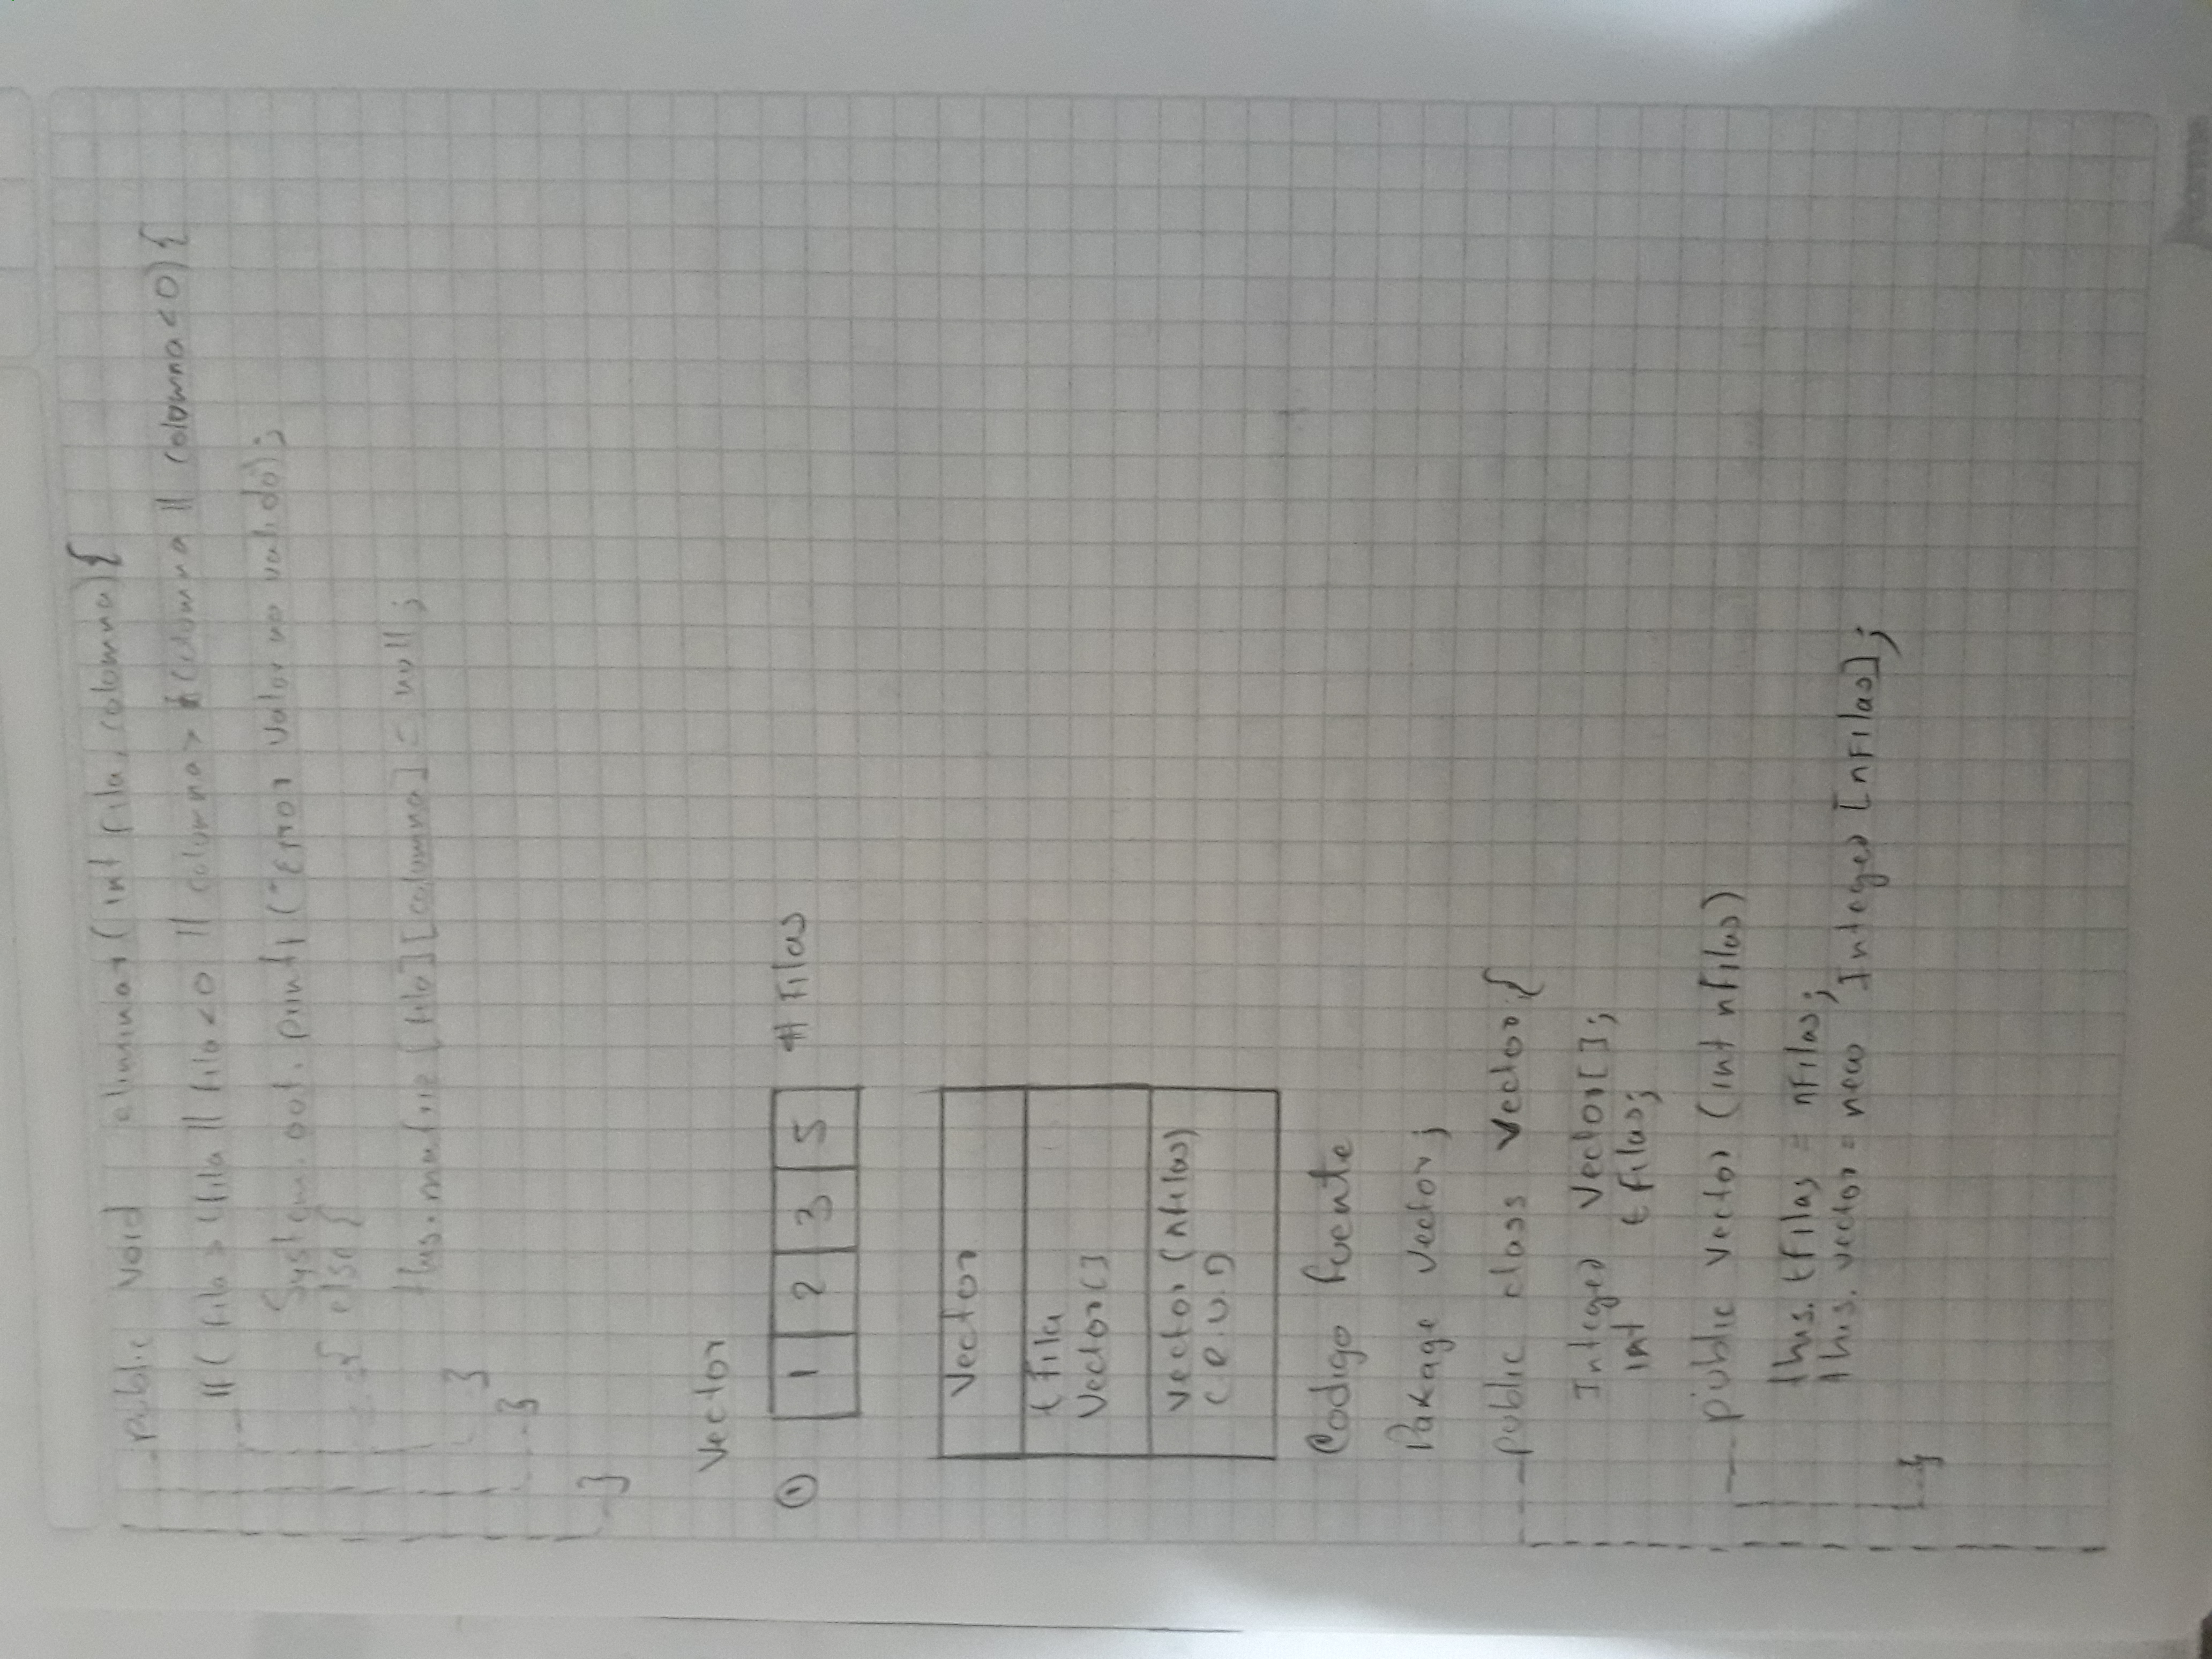 public void eliminar (int fila, columna){
if ( fila > tfila || fila < 0 || columna > tcolumna || columna < 0) {
System. out. printl ("Error valor no valido);
} else {
this. matriz [fila][columna] = null ;
}
}
}
Vector
① 1 2 3 5 # Filas
Vector
t Fila
Vector[]
vector (nfilas)
C.R.U.D
Codigo fuente
Pakage vector;
public class Vector {
Integer Vector[];
int t filas;
public vector (int nFilas)
this. tFilas = nFilas;
this. vector = new Integer [nFilas];
}
Norma